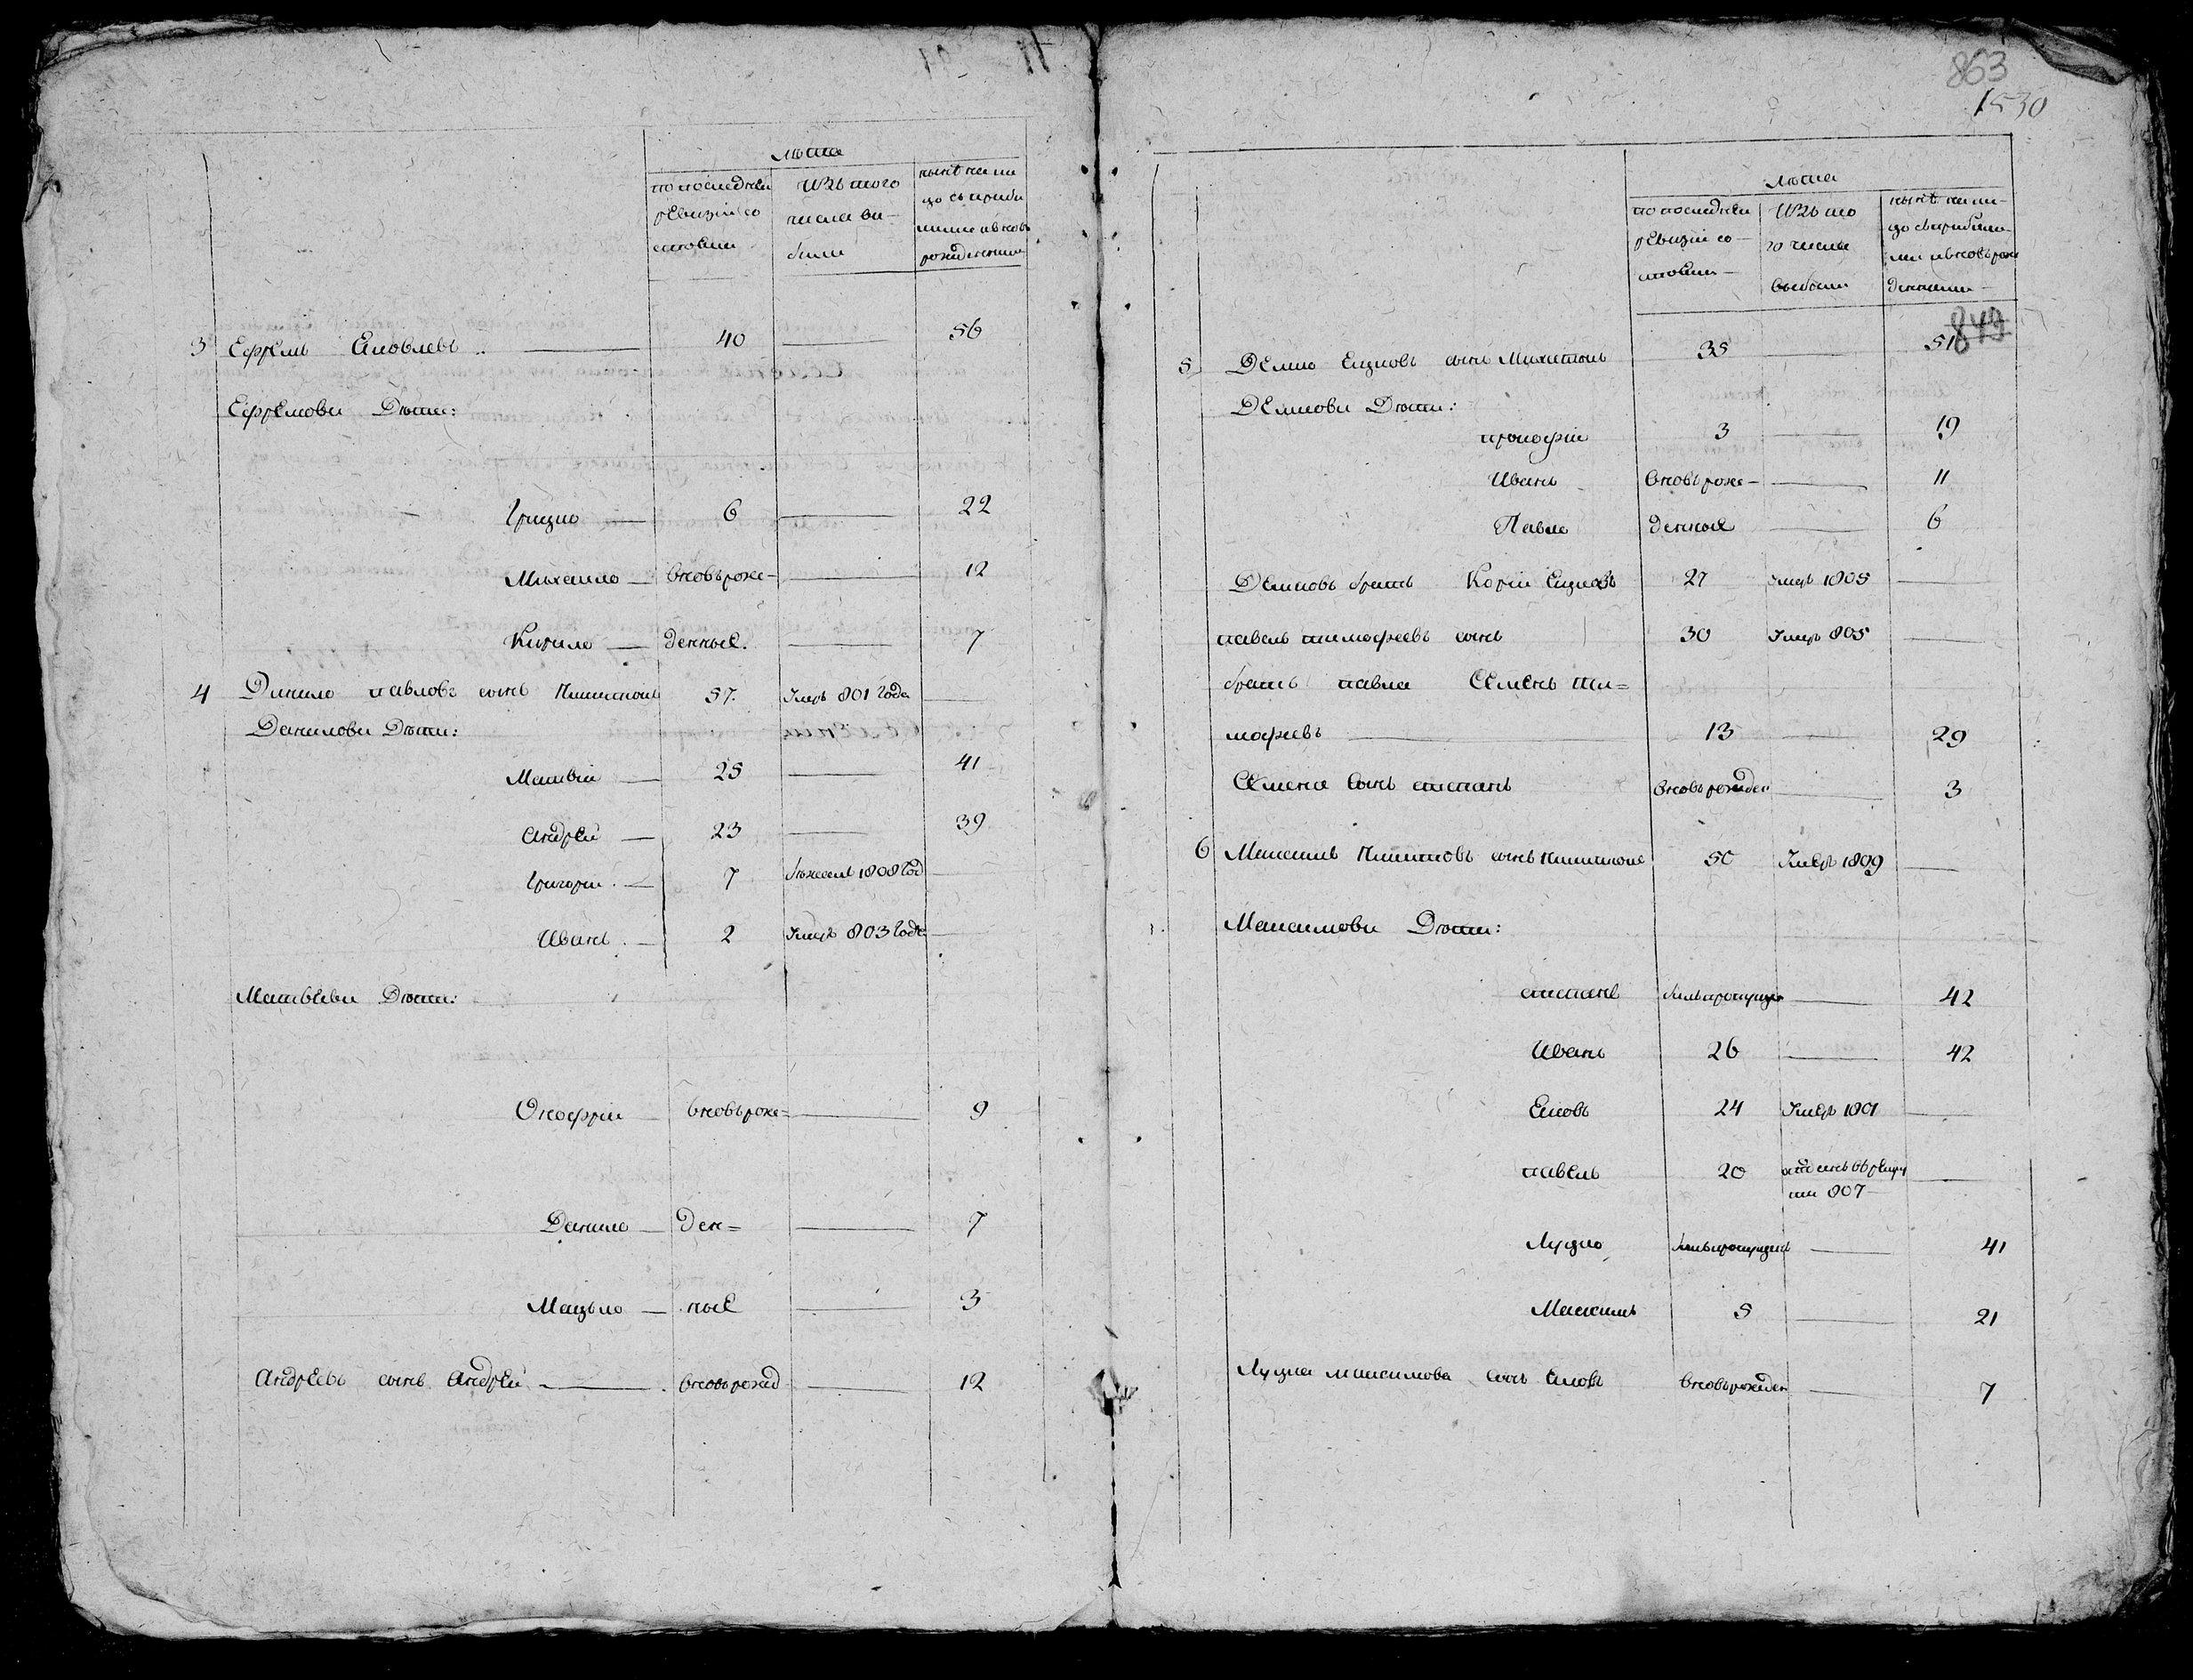 лѣта
по последнеи ревизіи со стояли
изъ того числа вы были
нынѣ на ли цо съ прибы лими и вновь рожденними
3 Ефремъ Яковлевъ 40 — 56
Ефремови Дѣти:
Грицко — 6 — 22
Михаило — вновърож- — 12
Кирило — денные. — 7
4 Данило павловъ сынъ 57. Умръ 801 Года —
Данилови Дѣти:
Матвіи — 25 — 41
Андрей — 23 — 39
Григори — 7 бѣжалъ 1808 Год —
Иванъ — 2 Умръ 803 Года —
Матвѣеви Дѣти:
Онофріи вновърож= — 9
Данило — ден= — 7
Мацько — ные — 3
Андреевъ сынъ Андрей — вновърожд — 12
863
1530
лѣта
по последнеи ревизіи со- стояли-
изъ то го числа выбыли
нынѣ на ли- цо съприбили- ми ивновърож денними-
849
5 Демко Яцковъ сынъ 35 — 51
Демкови Дѣти:
прокофіи 3 — 19
Иванъ вновърож- — 11
Павло денные — 6
Демковъ братъ Корніи Яцковъ 27 Умръ 1805 —
павелъ тимофеевъ сынъ 30 Умръ 805 —
братъ павла Семенъ ти=
мофеевъ — 13 — 29
Семена Сынъ степанъ вновърожден — 3
6 Максимъ сынъ 50 Умеръ 1809 —
Максимови Дѣти:
степанъ — 42
Иванъ 26 — 42
Яковъ 24 Умеръ 1801 —
павелъ 20 отданъ въ рекру ти 807 —
Луцко — 41
Максимъ 5 — 21
Луцка максимова сынъ Яковъ вновърожден — 7